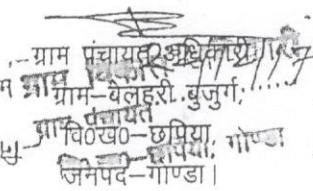 ग्राम पंचायत अधिकारी
ग्राम विकास
ग्राम–वेलहरी बुजुर्ग,
ग्राम पंचायत
वि0ख0–छपिया,
छपिया, गोण्डा
जनपद–गोण्डा।